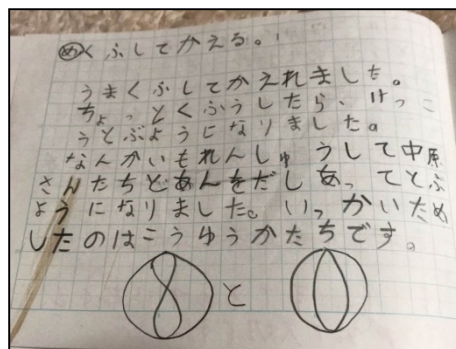 めくふしてかえる。
うまくふしてかえれました。
ちょっとくふうしたら、けっこ
うとぶようになりました。
なんかいもれんしゅうして中原
さんたちとあんをだしあってとぶ
ようになりました。いっかいため
したのはこうゆうかたちです。
と